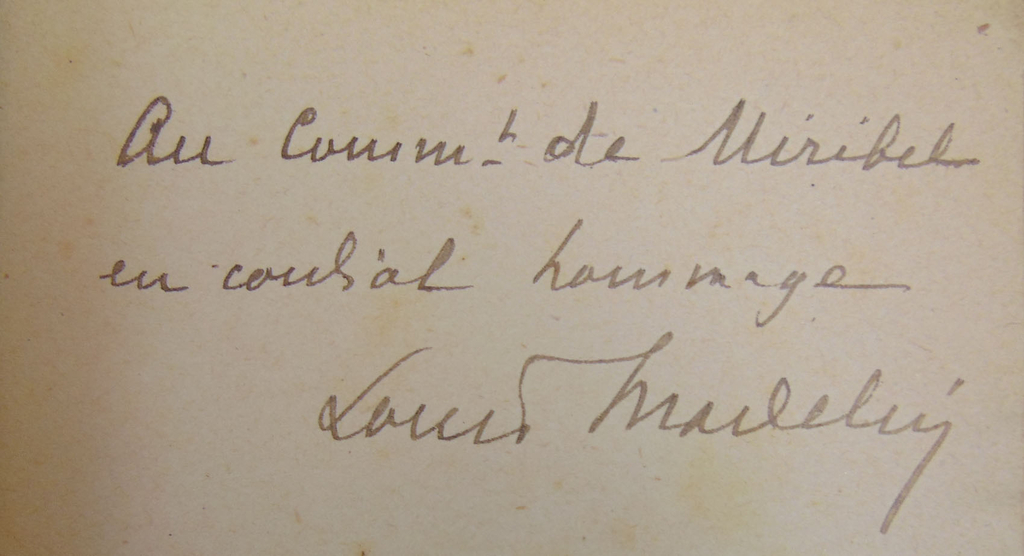 Au Commt de Miribel
en cordial hommage
Louis Madelin